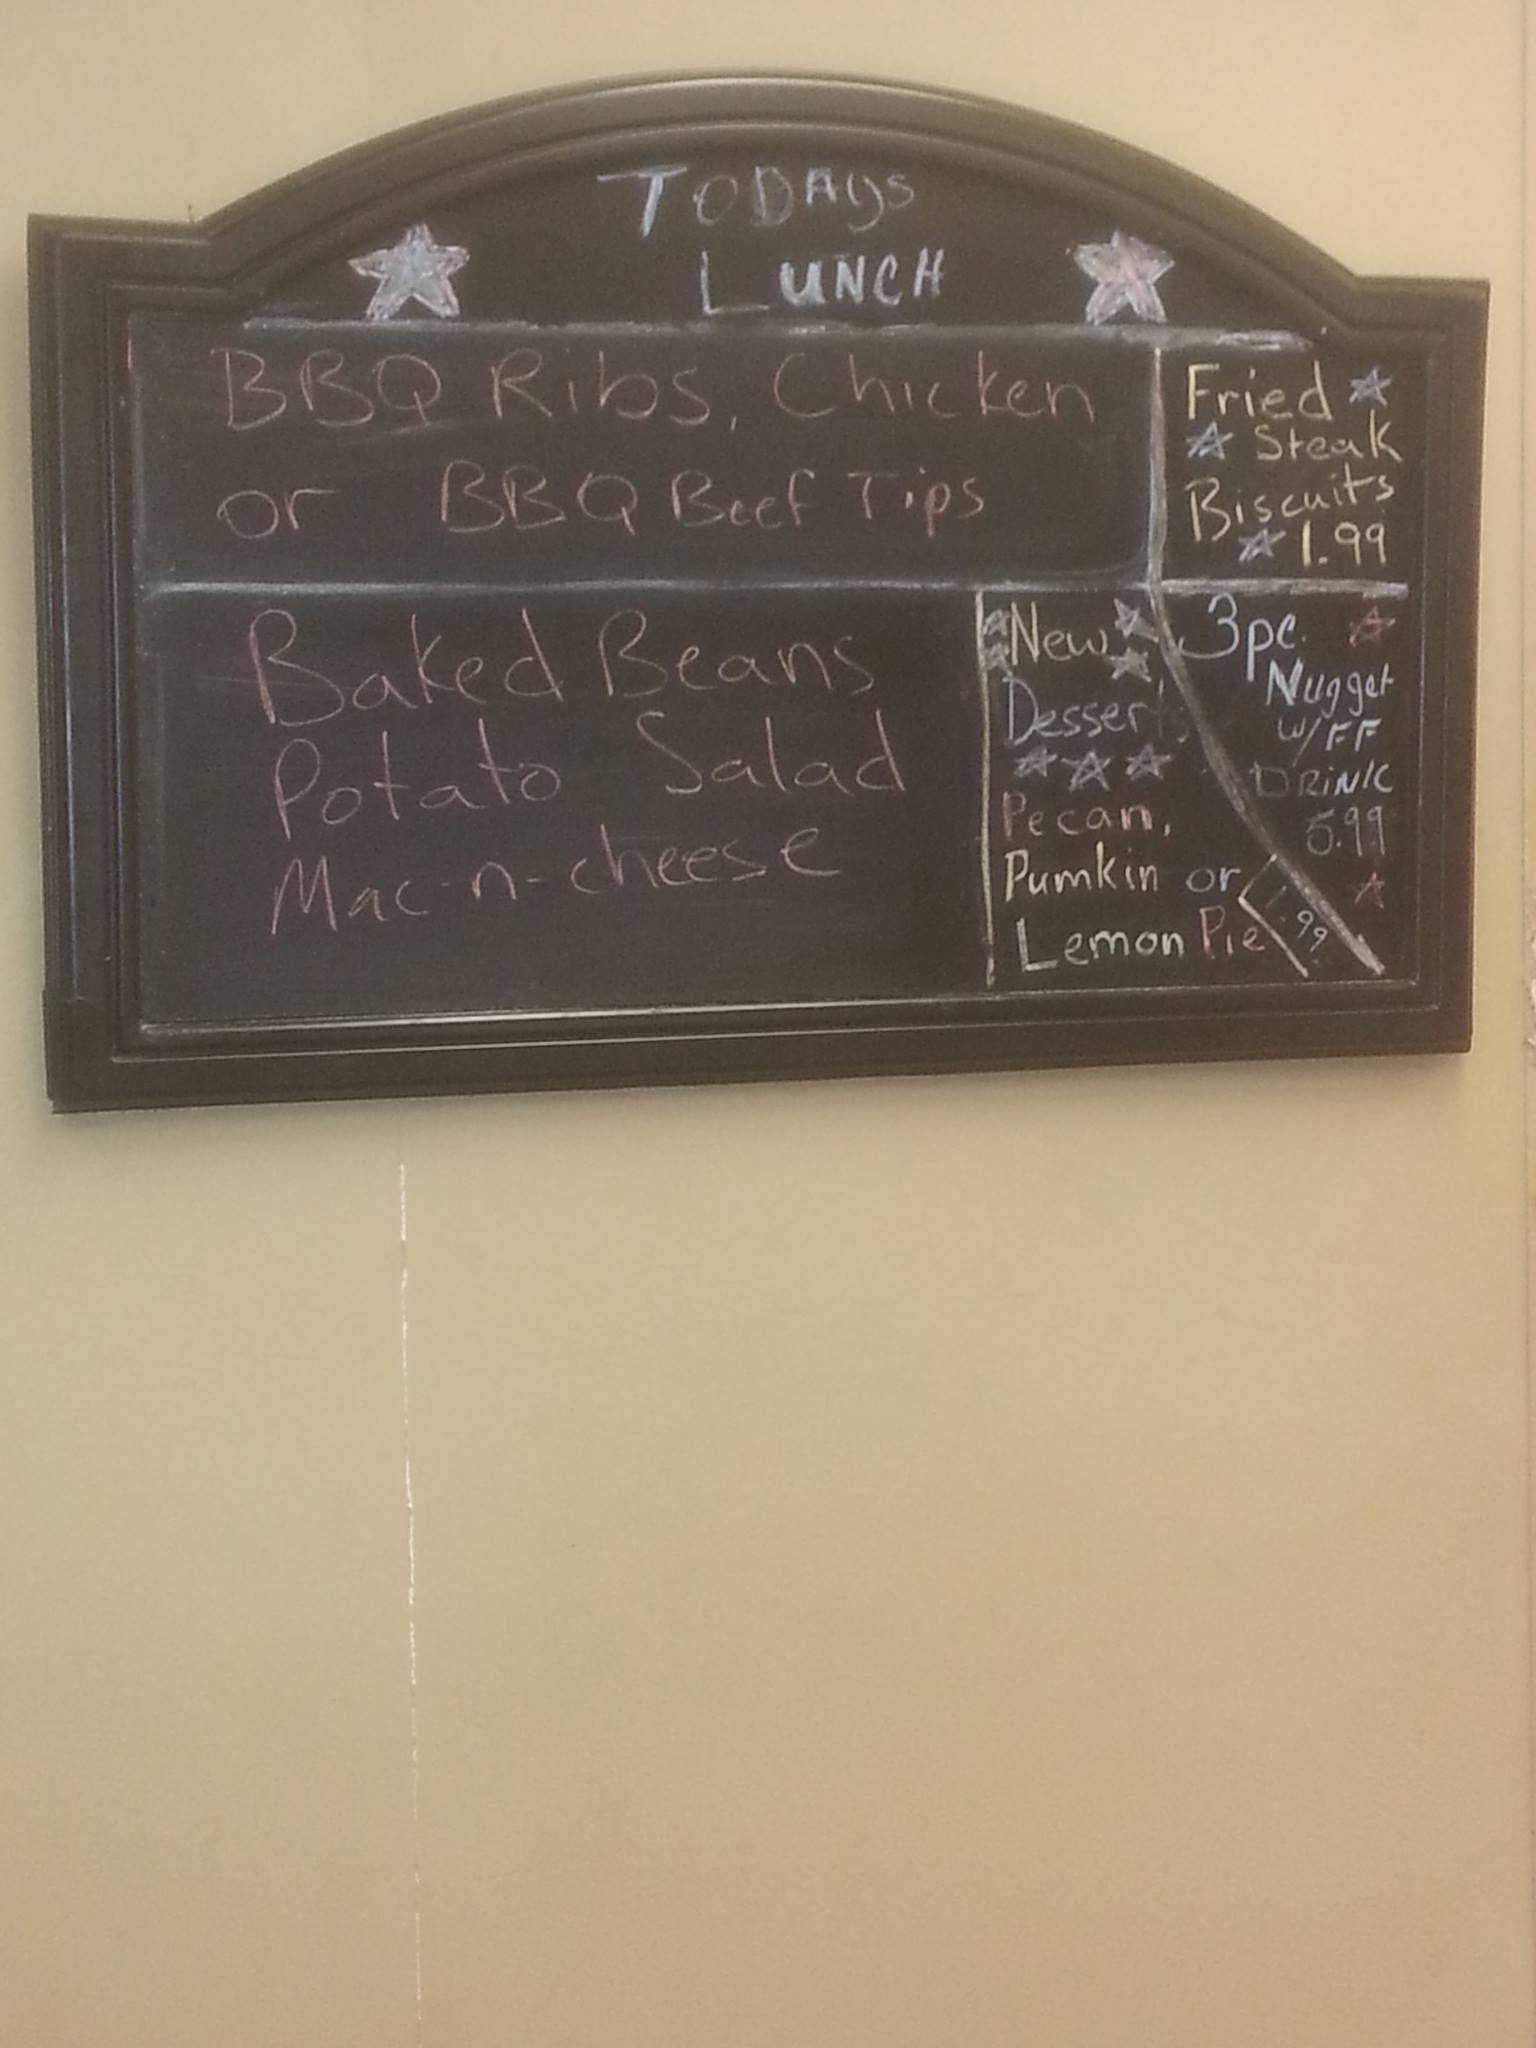 TODAYS
LUNCH
BBQ Ribs, Chicken
or BBQ Beef Tips
Fried
Steak
Biscuits
1.99
Baked Beans
Potato Salad
Mac-n-cheese
New
Desserts
Pecan,
Pumkin or
Lemon Pie
1.99
3pc.
Nugget
w/FF
DRINK
5.99